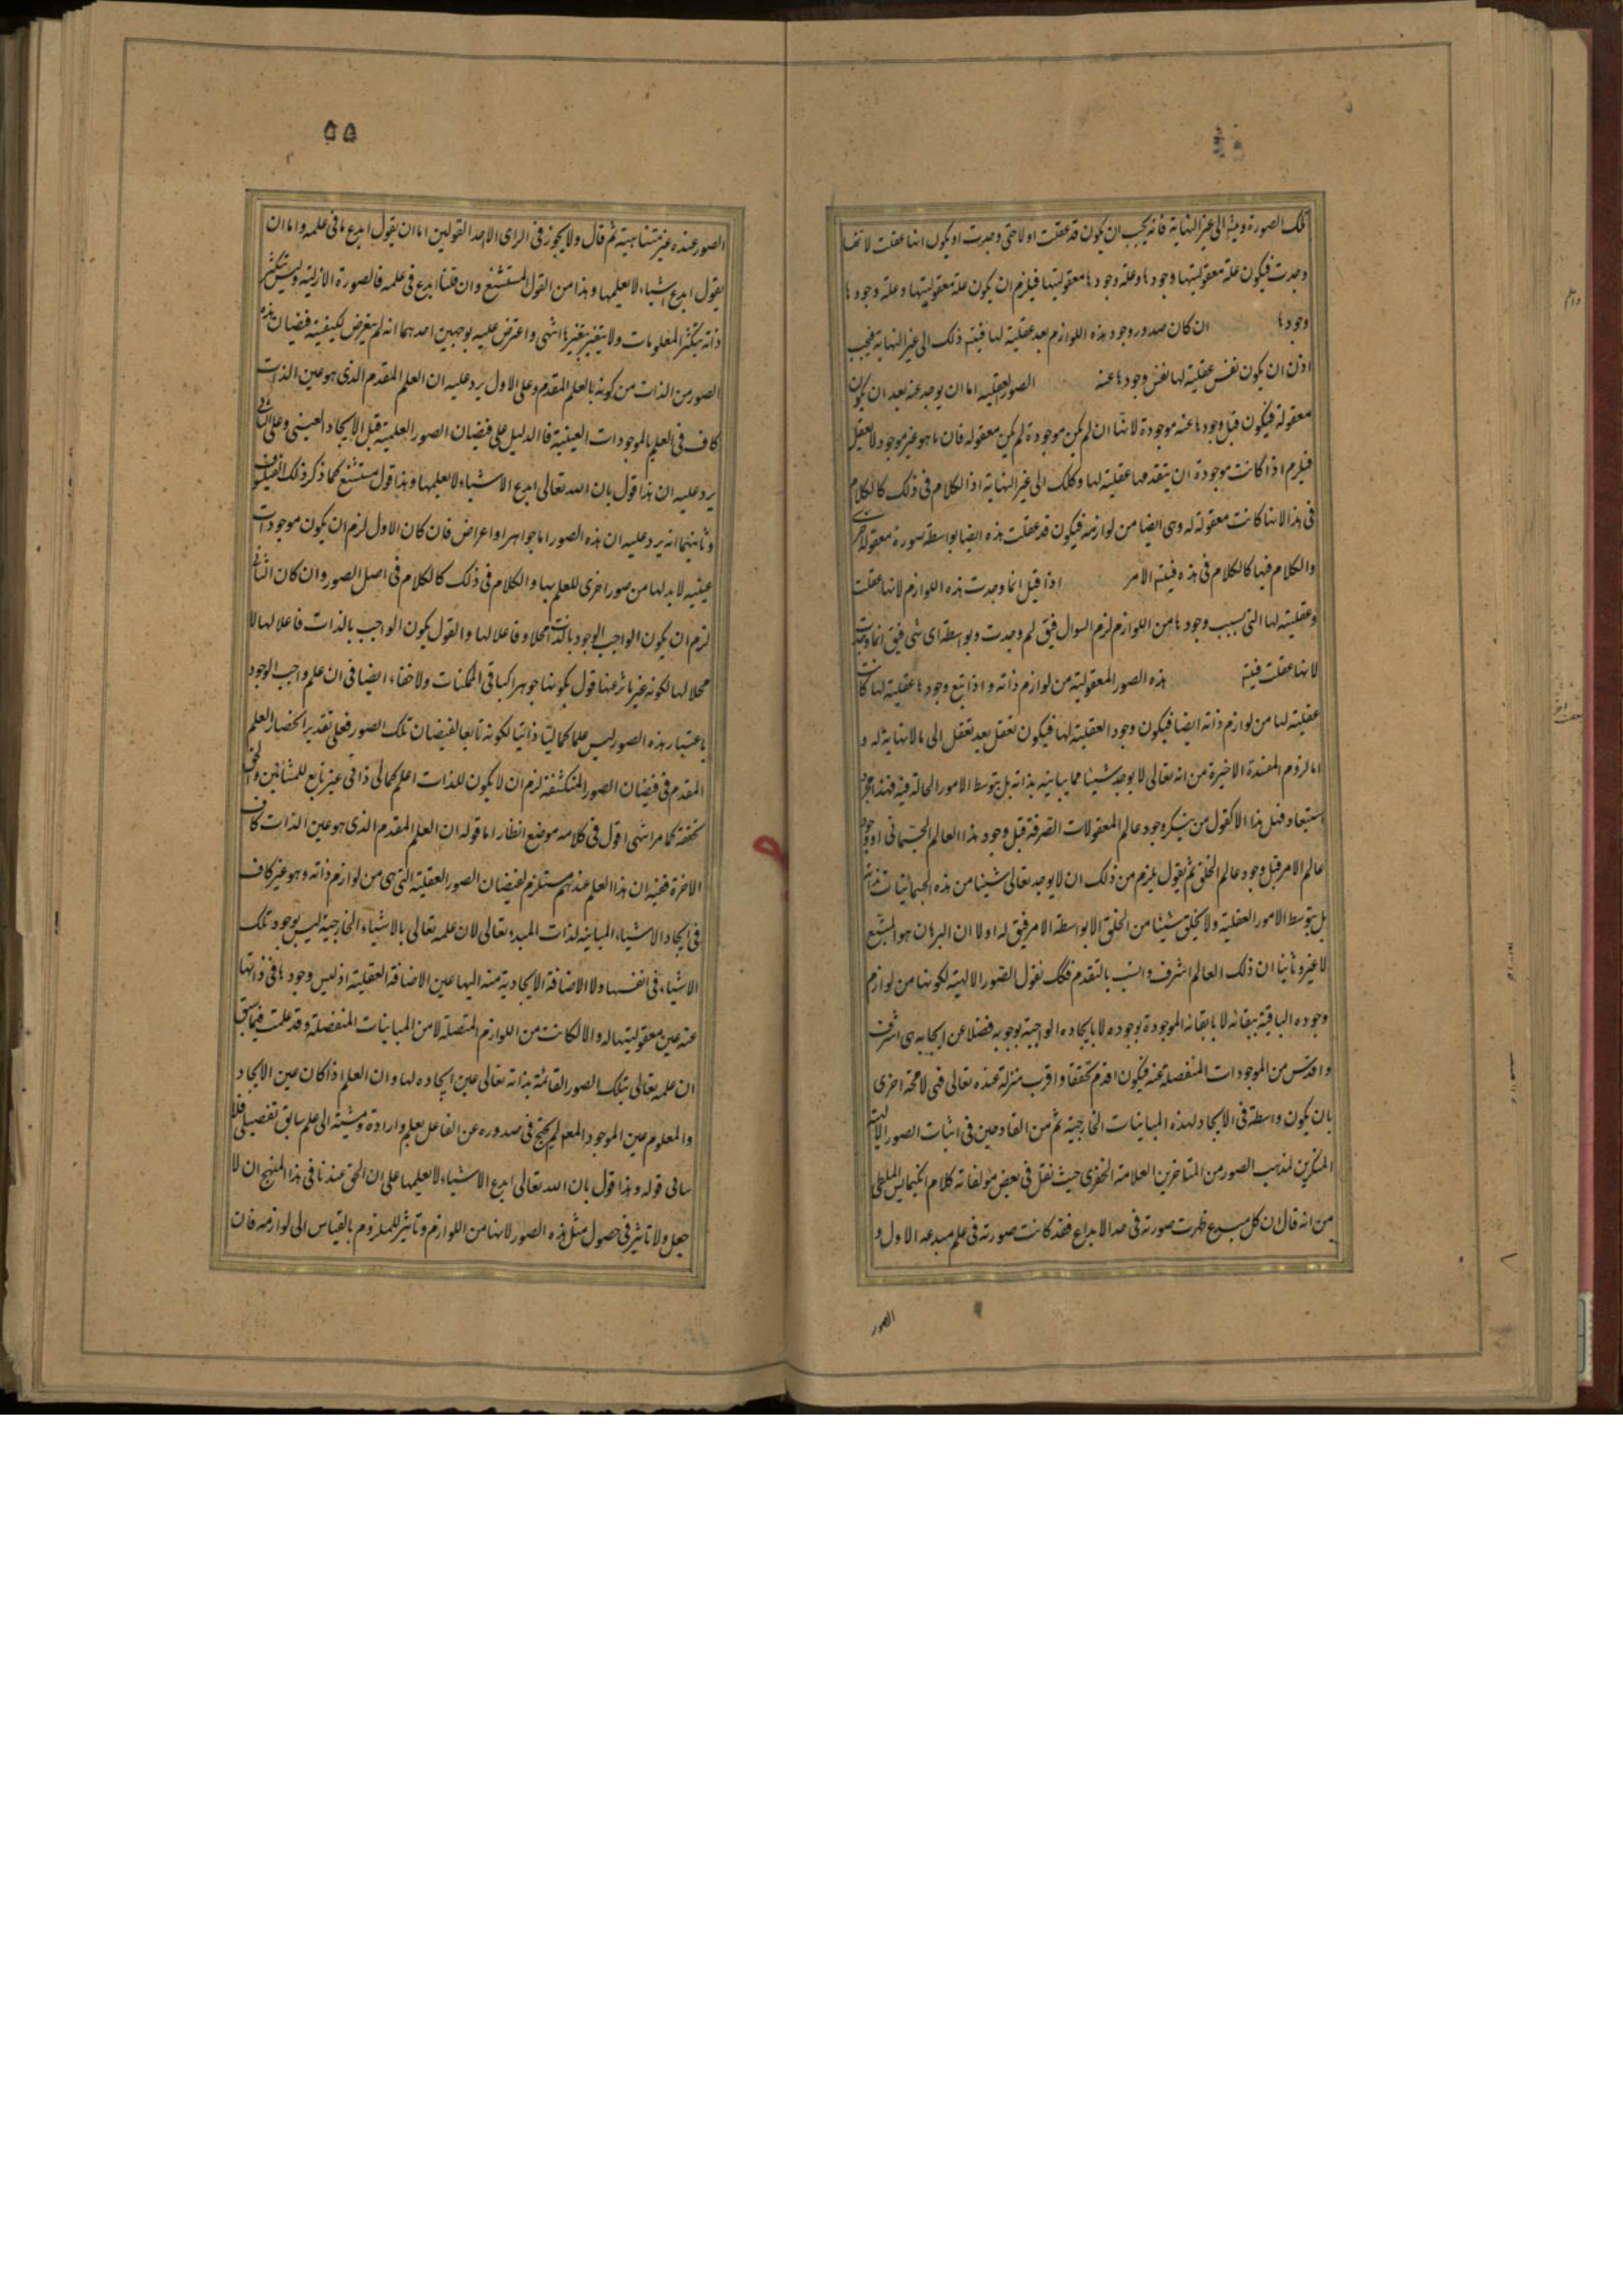 تلك الصورة ويتم الى غير النهاية فانه يجب ان يكون قد عقلت اولا حتى وجدت او يكون انها عقلت لانها
وجدت فيكون علة معقوليتها وجودها وعلة وجودها معقوليتها فيلزم ان يكون علة معقوليتها وعلة وجودها
وجودها ان كان صدور وجود هذه اللوازم بعد عقليته لها فيتم ذلك الى غير النهاية فيجب
اذن ان يكون نفس عقليته لها نفس وجودها عنه الصور العقلية اما ان يوجد عنه بعد ان يكون
معقولة فيكون قبل وجودها عنه موجودة لانها ان لم يكن موجودة لم يكن معقولة فان ما هو غير موجود لا يعقل
فيلزم اذا كانت موجودة ان يتقدمها عقليته لها وكك الى غير النهاية اذ الكلام فى ذلك كالكلام
فى هذا لانها كانت معقولة له وهى ايضا من لوازمه فيكون قد عقلت هذه ايضا بواسطة صورة معقولة اخرى
والكلام فيها كالكلام فى هذه فيتم الامر اذا قيل انما وجدت هذه اللوازم لانها عقلت
وعقليته لها التى بسبب وجودها من اللوازم لزم السوال فيق لم وجدت وبواسطة اى شى فيق انما وجدت
لانها عقلت فيتم هذه الصور المعقولية من لوازم ذاته واذا تبع وجودها عقليته لها كانت
عقليته لها من لوازم ذاته ايضا فيكون وجود العقلية لها فيكون تعقل بعد تعقل الى ما لا نهاية له و
اما لزوم المفسدة الاخيرة من انه تعالى لا يوجد شيئا مما يباينه بذاته بل بتوسط الامور الحالة فيه فهذا مجرد
استبعاد فمثل هذا الا كقول من ينكر وجود عالم المعقولات الصرفة قبل وجود هذا العالم الجسمانى او وجود
عالم الامر قبل وجود عالم الخلق ثم يقول يلزم من ذلك ان لا يوجد تعالى شيئا من هذه الجسمانيات بذاته
بل بتوسط الامور العقلية ولا يخلق شيئا من الخلق الا بواسطة الامر فيق له اولا ان البرهان هو المتبع
لا غير وثانيا ان ذلك العالم اشرف وانسب بالتقدم فكك نقول الصور الالهية لكونها من لوازم
وجوده الباقية ببقائه لا بابقائه الموجودة بوجوده لا بايجاده الواجبة بوجوبه فضلا عن ايجابه هى اشرف
واقدس من الموجودات المنفصلة عنه فيكون اقدم تحققا واقرب منزلة عنده تعالى فهى لا محة احرى
بان يكون واسطة فى الايجاد لهذه المباينات الخارجية ثم من القادحين فى اثبات الصور الالهية
المنكرين لمذهب الصور من المتاخرين العلامة الخفرى حيث نقل فى بعض مؤلفاته كلام انكيمايس الملطى
من انه قال ان كل مبدع ظهرت صورته فى حد الابداع فقد كانت صورته فى علم مبدعه الاول و
الصور
٥٥
الصور عنده غير متناهية ثم قال ولا يجوز فى الراى الا احد القولين اما ان يقول ابدع ما فى علمه واما ان
يقول ابدع اشياء لا يعلمها وهذا من القول المستشنع وان قلنا ابدع فى علمه فالصورة الازلية وليس يتكثر
ذاته بتكثر المعلومات ولا يتغير بتغيرها انتهى واعترض عليه بوجهين احدهما انه لم يتعرض لكيفية فيضان هذه
الصور من الذات من كونه بالعلم المقدم وعلى الاول يرد عليه ان العلم المقدم الذى هو عين الذات
كاف فى العلم بالموجودات العينية فما الدليل على فيضان الصور العلمية قبل الايجاد العينى وعلى الثانى
يرد عليه ان هذا قول بان الله تعالى ابدع الاشياء لا يعلمها وهذا قول مستشنع كما ذكر ذلك الفيلسوف
وثانيهما انه يرد عليه ان هذه الصور اما جواهر او اعراض فان كان الاول لزم ان يكون موجودات
عينيه لا بد لها من صور اخرى للعلم بها والكلام فى ذلك كالكلام فى اصل الصور وان كان الثانى
لزم ان يكون الواجب الوجود بالذات محلا وفاعلا لها والقول يكون الواجب بالذات فاعلا لها لا
محلا لها لكونه غير متاثر عنها قول بكونها جواهر كباقى الممكنات ولا خفاء ايضا فى ان علم واجب الوجود
باعتبار هذه الصور ليس علما كماليا ذاتيا لكونه تابعا لفيضان تلك الصور فعلى تقدير انحصار العلم
المقدم فى فيضان الصور المنكشفة لزم ان لا يكون للذات اعلم كمالى ذاتى غير تابع للمتباين والحق
تحققه كما مر انتهى اقول فى كلامه موضع انظار اما قوله ان العلم المقدم الذى هو عين الذات كاف
الاخره ففيه ان هذا العلم عندهم مستلزم لفيضان الصور العقلية التى هى من لوازم ذاته وهو غير كاف
فى ايجاد الاشياء المباينه لذات المبدء تعالى لان علمه تعالى بالاشياء الخارجية ليس بوجود تلك
الاشياء فى انفسها ولا الاضافة الايجادية منه اليها عين الاضافة العقلية اذ ليس وجودها فى ذواتها
عنه عين معقوليتها له والا لكانت من اللوازم المتصلة لا من المباينات المنفصلة وقد علمت فيما سبق
ان علمه تعالى بتلك الصور القائمة بذاته تعالى عين ايجاده لها وان العلم اذا كان عين الايجاد
والمعلوم عين الموجود المعلوم لم يحتج فى صدوره عن الفاعل بعلم وارادة ومشية الى علم سابق تفصيلى فلا
يتاتى قوله وهذا قول بان الله تعالى ابدع الاشياء لا يعلمها على ان الحق عندنا فى هذا المنهج ان لا
جعل ولا تاثير فى حصول مثل هذه الصور لانها من اللوازم وتاثير للملزوم بالقياس الى لوازمه فان